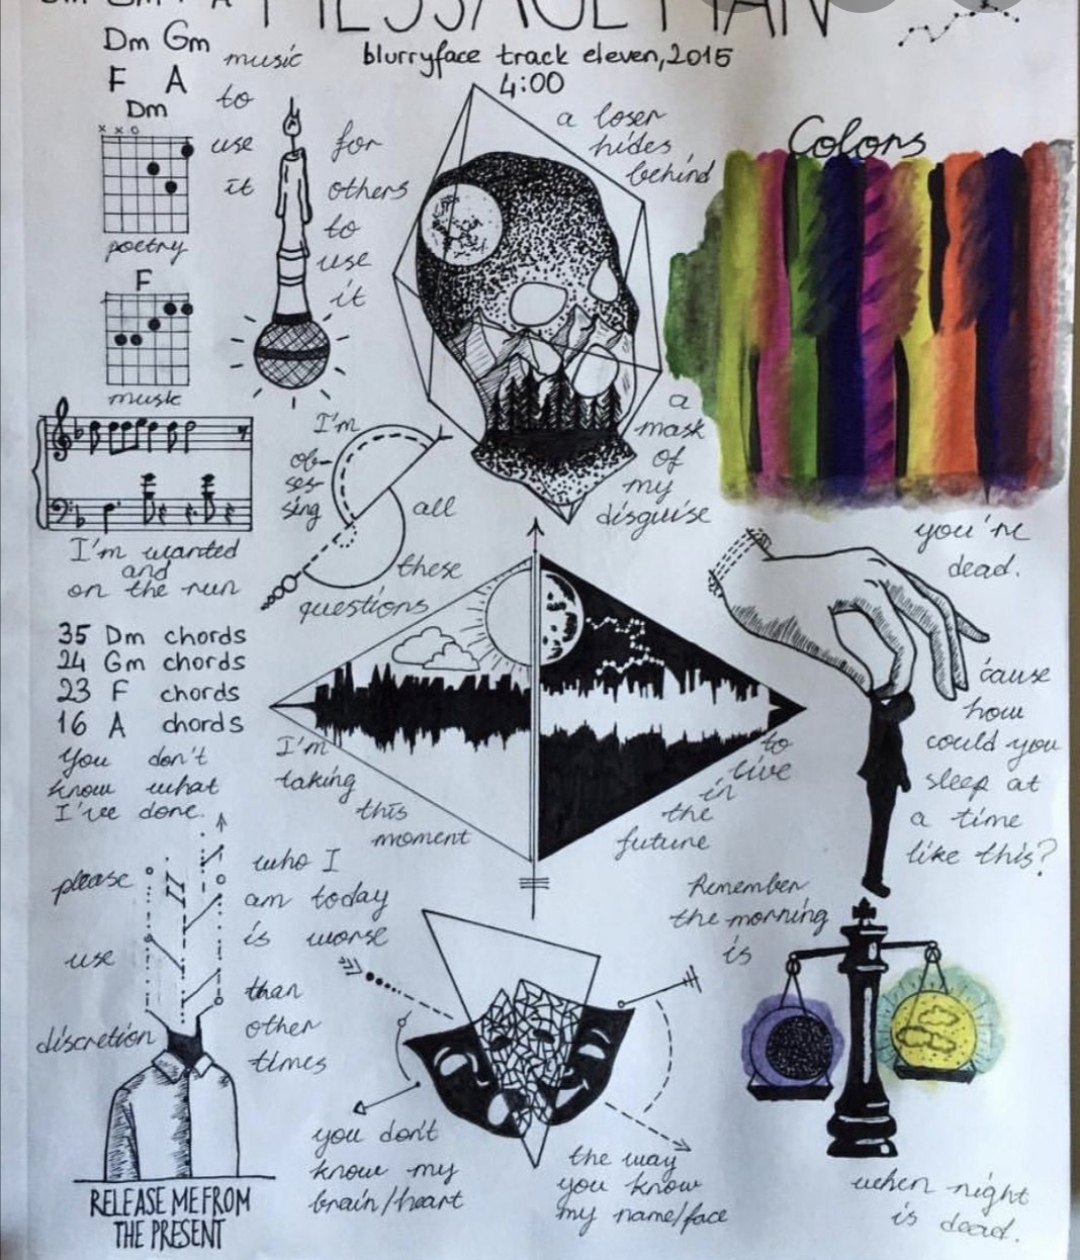 MESSAGE MAN
Dm Gm
F A
blurryface track eleven, 2015
4:00
Dm
x x o
poetry
F
music
music
to
use
it
for
others
to
use
it
a loser
hides
behind
a
mask
of
my
disguise
Colors
you're
dead.
I'm wanted
and
on the run
I'm
ob-
ses-
sing
all
these
questions
35 Dm chords
24 Gm chords
23 F chords
16 A chords
You don't
know what
I've done.
I'm
taking
this
moment
to
live
in
the
future
'cause
how
could you
sleep at
a time
like this?
please
use
discretion
who I
am today
is worse
than
other
times
RELEASE ME FROM
THE PRESENT
you don't
know my
brain/heart
the way
you know
my name/face
Remember
the morning
is
when night
is dead.